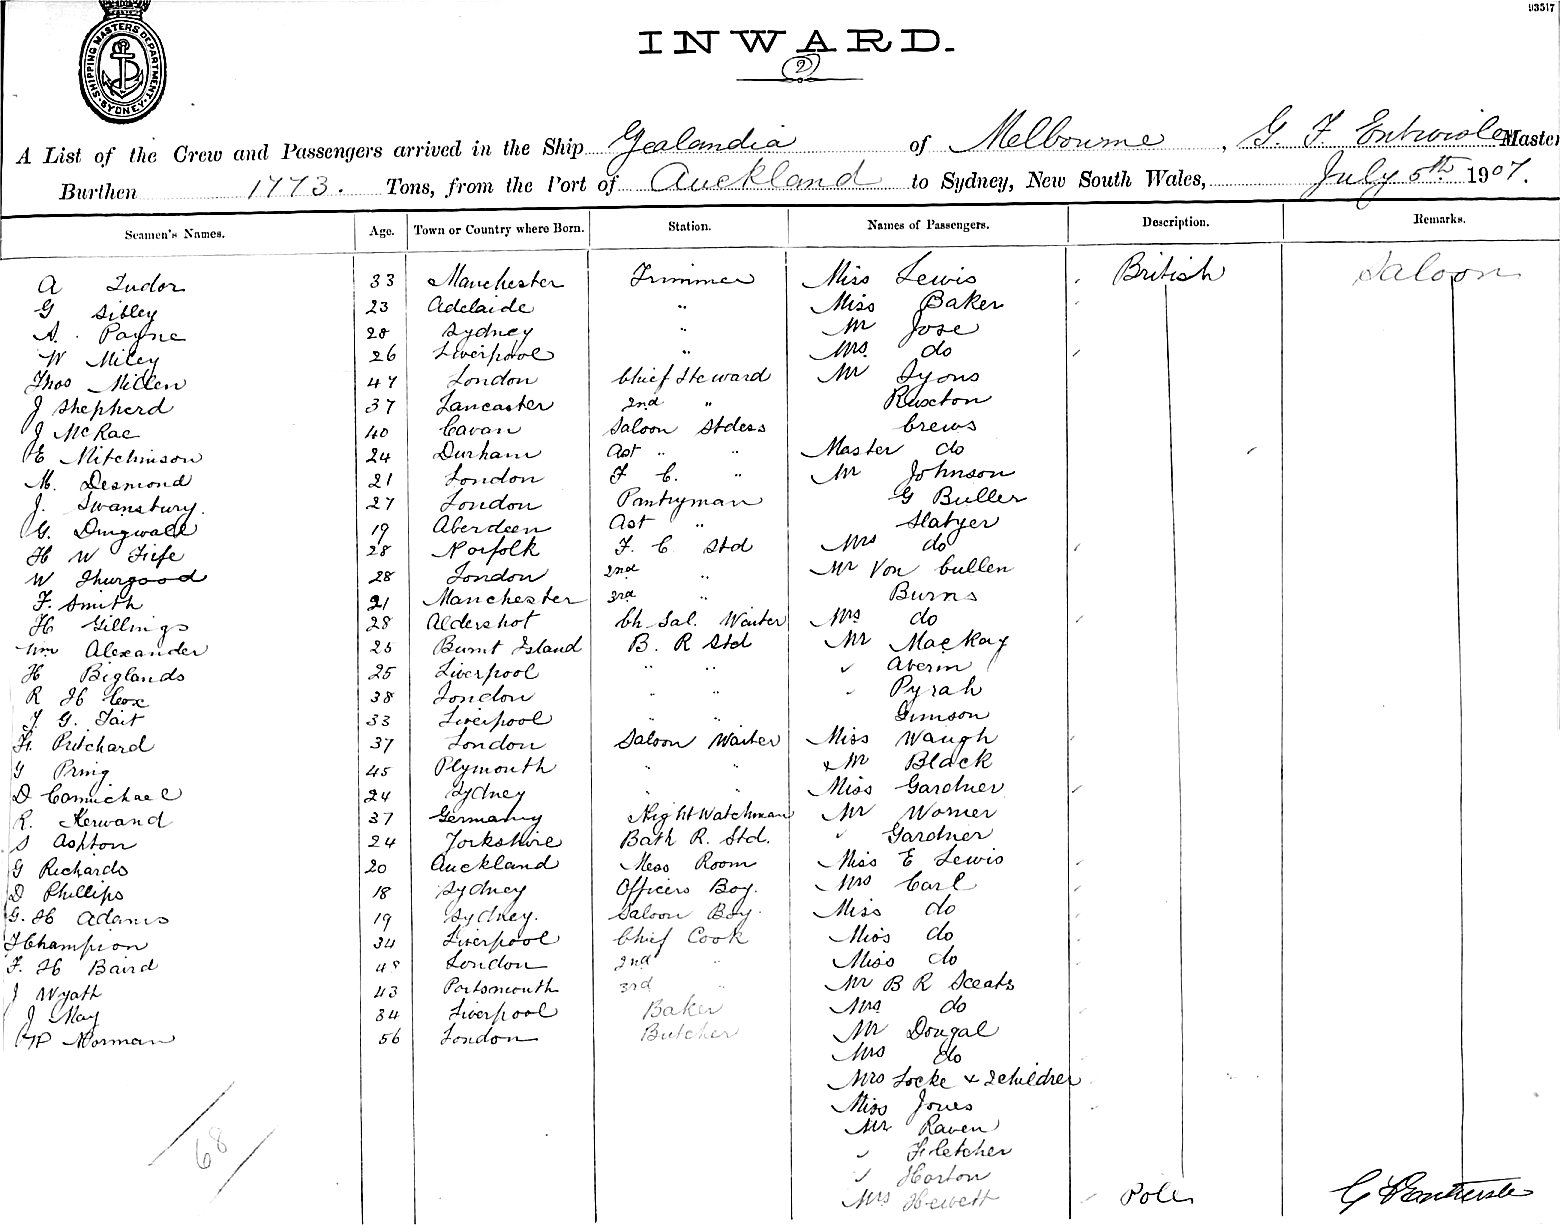 93517
SHIPPING MASTERS DEPARTMENT SYDNEY
INWARD.
2
A List of the Crew and Passengers arrived in the Ship Zealandia of Melbourne, G. F. Entwisle Master
Burthen 1773. Tons, from the Port of Auckland to Sydney, New South Wales, July 5th 1907.
Seamen's Names. Age. Town or Country where Born. Station. Names of Passengers. Description. Remarks.
A Tudor 33 Manchester Trimmer Miss Lewis British Saloon
G Sibley 23 Adelaide " Miss Baker
A. Payne 28 Sydney " Mr Jose
W Miley 26 Liverpool " Mrs do
Thos Millen 47 London Chief Steward Mr Lyons
J Shepherd 37 Lancaster 2nd " Ruxton
J McRae 40 Cavan Saloon Stdess Crews
E Mitchinson 24 Durham Ast " " Master do
M. Desmond 21 London F C. " Mr Johnson
J. Swansbury. 27 London Pantryman G Buller
G. Dingwall 19 Aberdeen Ast " Slatyer
H W Fife 28 Norfolk F. C Std Mrs do
W Thurgood 28 London 2nd " Mr Von Cullen
F. Smith 21 Manchester 3rd " Burns
H Gillings 28 Aldershot Ch. Sal. Waiter Mrs do
Wm Alexander 25 Burnt Island B. R Std Mr MacKay
H Biglands 25 Liverpool " " " Averm
R H Cox 38 London " " " Pyrah
T. G. Tait 33 Liverpool " " Gimson
H. Pritchard 37 London Saloon Waiter Miss Waugh
G Pring 45 Plymouth " " & Mr Black
D Carmichael 24 Sydney " " Miss Gardner
R. Kerwand 37 Germany Night Watchman Mr Womer
S Ashton 24 Yorkshire Bath R. Std. " Gardner
G Richards 20 Auckland Mess Room Miss E Lewis
D Phillips 18 Sydney Officers Boy. Mrs Carl
G. H Adams 19 Sydney. Saloon Boy. Miss do
Champion 34 Liverpool Chief Cook Miss do
F. H Baird 48 London 2nd " Miss do
J Wyath 43 Portsmouth 3rd " Mr B R Sceats
J May 34 Liverpool Baker Mrs do
Norman 56 London Butcher Mr Dougal
Mrs do
Mrs Locke & 2 children
Miss Jones
Mr Raven
" Fletcher
" Horton
Mrs Hewett Pole
68